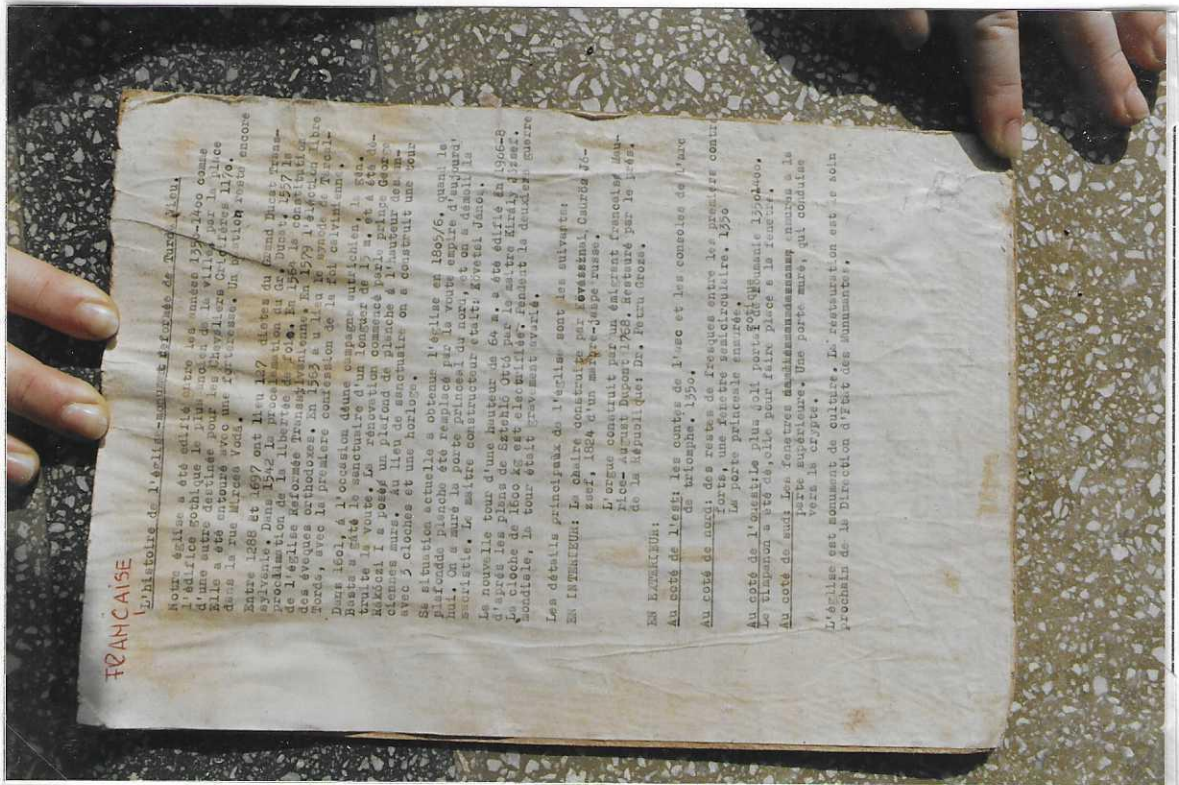 FRANCAISE
L'histoire de l'église-monument Reformée de Turda Vieu.
Notre église a été édifié entre les années 1350-1400 come
l'édifice gothique le plus ancien de la ville, ici la place
d'une autre destinée pour les Chevaliers Croisières 1170.
Elle a été entouré avec une forteresse. Un bastion reste encore
dans la rue Mircea Vodă.
Entre 1288 et 1697 ont lieu 127 diètes du Grand Ducat Trans-
sylvanie. Dans 1542 la proclamation du Gr. Ducat. 1557 la
proclamation de la libertée de foie. En 1564 la constitution
de l'église Reformée Transsilvanienne. En 1579 l'élection libre
des évêques orthodoxes. En 1563 a lieu le synode de
Torda, avec la première confession de la foi calvinienne.
Dans 1601, à l'occasion d'une campagne autrichien, le
Basta a gâté le sanctuaire d'un longuer de 15 m. et a été dé-
truite la voute. La rénovation commencé par le prince George
Rákóczi I a posée un plafond de planche à l'hauteur des an-
ciennes murs. Au lieu de sanctuaire on a constuit une tour
avec 3 cloches et une horloge.
Sa situation actuelle a obtenue l'église en 1805/6. quand le
plafondde planche été remplacé par la voute empire d'aujourd'
hui. On a muré la porte princesal du nord, et on a demoli la
sacristie. Le maitre constructeur était: Követsi János.
La nouvelle tour d'une hauteur de 64 m. a été édifié en 1906-8
d'aprés les plans de Sztehló Ottó par le maitre Király József.
La cloche de 1600 kg est electrifiée. Pendent la deuxième guerre
Mondiale, la tour était gravement avarié.
Les détails principaux de l'église sont les suivante:
EN INTERIEUR: La chaire construite par Kövesznai Csűrös Jó-
zsef, 1824 d'un marbre-jaspe russe.
L'orgue construit par un émigrant française Mau-
rice- August Dupont 1768. Restauré par le prés.
de la Republique: Dr. Petru Groza.
EN EXTERIEUR:
Au coté de l'est: les countes de l'asc et les consoles de l'arc
de triomphe. 1350.
Au coté de nord: des restes de fresques entre les premiers contre
forts, une fenetre semicirculaire. 1350
La porte princesale enmurée.
gotique
Au coté de l'ouest: Le plus joli portal de Roumanie 1350-1400.
Le timpanon a été dé, elle pour faire place a la fenetre.
Au coté de sud: Les fenetres enmurés a la
parte supérieure. Une porte muré, qui conduise
vers la crypte.
L'église est monument de culture. La restauration est le soin
prochain de la Direction d'Etat des Monumants.